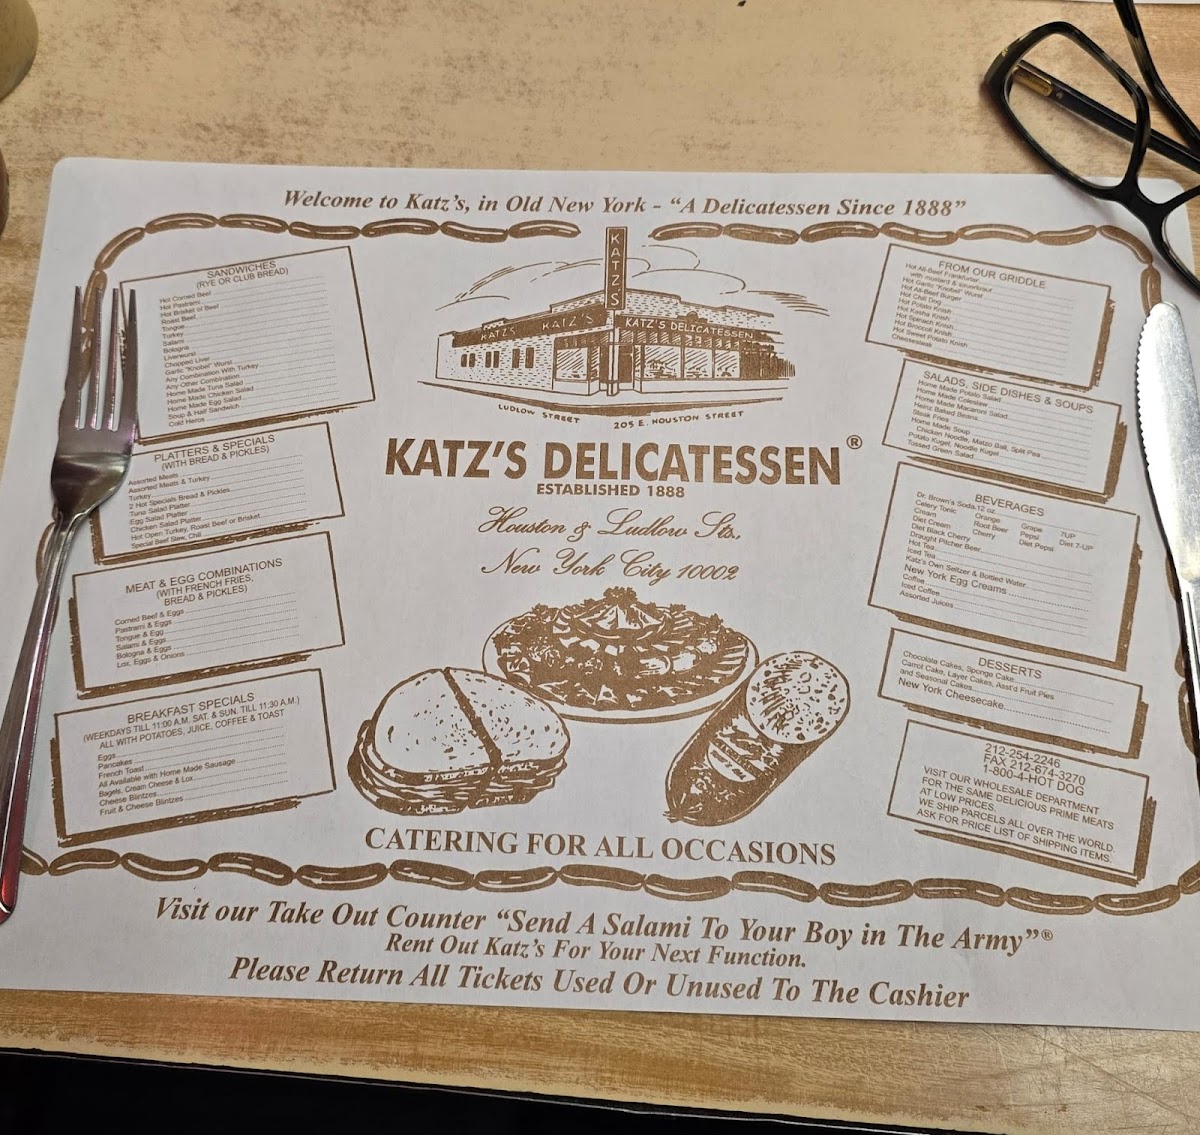 Welcome to Katz's, in Old New York - "A Delicatessen Since 1888"
SANDWICHES
(RYE OR CLUB BREAD)
Hot Corned Beef
Hot Pastrami
Hot Brisket of Beef
Roast Beef
Tongue
Turkey
Salami
Bologna
Liverwurst
Chopped Liver
Garlic "Knobel" Wurst
Any Combination With Turkey
Any Other Combination
Home Made Tuna Salad
Home Made Chicken Salad
Home Made Egg Salad
Soup & Half Sandwich
Cold Heros
PLATTERS & SPECIALS
(WITH BREAD & PICKLES)
Assorted Meats
Assorted Meats & Turkey
Turkey
2 Hot Specials Bread & Pickles
Tuna Salad Platter
Egg Salad Platter
Chicken Salad Platter
Hot Open Turkey, Roast Beef or Brisket
Special Beef Stew, Chili
MEAT & EGG COMBINATIONS
(WITH FRENCH FRIES,
BREAD & PICKLES)
Corned Beef & Eggs
Pastrami & Eggs
Tongue & Egg
Salami & Eggs
Bologna & Eggs
Lox, Eggs & Onions
BREAKFAST SPECIALS
(WEEKDAYS TILL 11:00 A.M. SAT. & SUN. TILL 11:30 A.M.)
ALL WITH POTATOES, JUICE, COFFEE & TOAST
Eggs
Pancakes
French Toast
All Available with Home Made Sausage
Bagels, Cream Cheese & Lox
Cheese Blintzes
Fruit & Cheese Blintzes
KATZ'S
KATZ'S
KATZ'S
KATZ'S DELICATESSEN
LUDLOW STREET
205 E. HOUSTON STREET
KATZ'S DELICATESSEN®
ESTABLISHED 1888
Houston & Ludlow Sts.,
New York City 10002
CATERING FOR ALL OCCASIONS
FROM OUR GRIDDLE
Hot All-Beef Frankfurter
with mustard & sauerkraut
Hot Garlic "Knobel" Wurst
Hot All-Beef Burger
Hot Chili Dog
Hot Potato Knish
Hot Kasha Knish
Hot Spinach Knish
Hot Broccoli Knish
Hot Sweet Potato Knish
Cheesesteak
SALADS, SIDE DISHES & SOUPS
Home Made Potato Salad
Home Made Coleslaw
Home Made Macaroni Salad
Heinz Baked Beans
Steak Fries
Home Made Soup
Chicken Noodle, Matzo Ball, Split Pea
Potato Kugel, Noodle Kugel
Tossed Green Salad
BEVERAGES
Dr. Brown's Soda 12 oz.
Celery Tonic Orange Grape 7UP
Cream Root Beer Pepsi Diet 7-UP
Diet Cream Cherry Diet Pepsi
Diet Black Cherry
Draught Pitcher Beer
Hot Tea
Iced Tea
Katz's Own Seltzer & Bottled Water
New York Egg Creams
Coffee
Iced Coffee
Assorted Juices
DESSERTS
Chocolate Cakes, Sponge Cake
Carrot Cake, Layer Cakes, Asst'd Fruit Pies
and Seasonal Cakes
New York Cheesecake
212-254-2246
FAX 212-674-3270
1-800-4-HOT DOG
VISIT OUR WHOLESALE DEPARTMENT
FOR THE SAME DELICIOUS PRIME MEATS
AT LOW PRICES.
WE SHIP PARCELS ALL OVER THE WORLD.
ASK FOR PRICE LIST OF SHIPPING ITEMS.
Visit our Take Out Counter "Send A Salami To Your Boy in The Army"®
Rent Out Katz's For Your Next Function.
Please Return All Tickets Used Or Unused To The Cashier